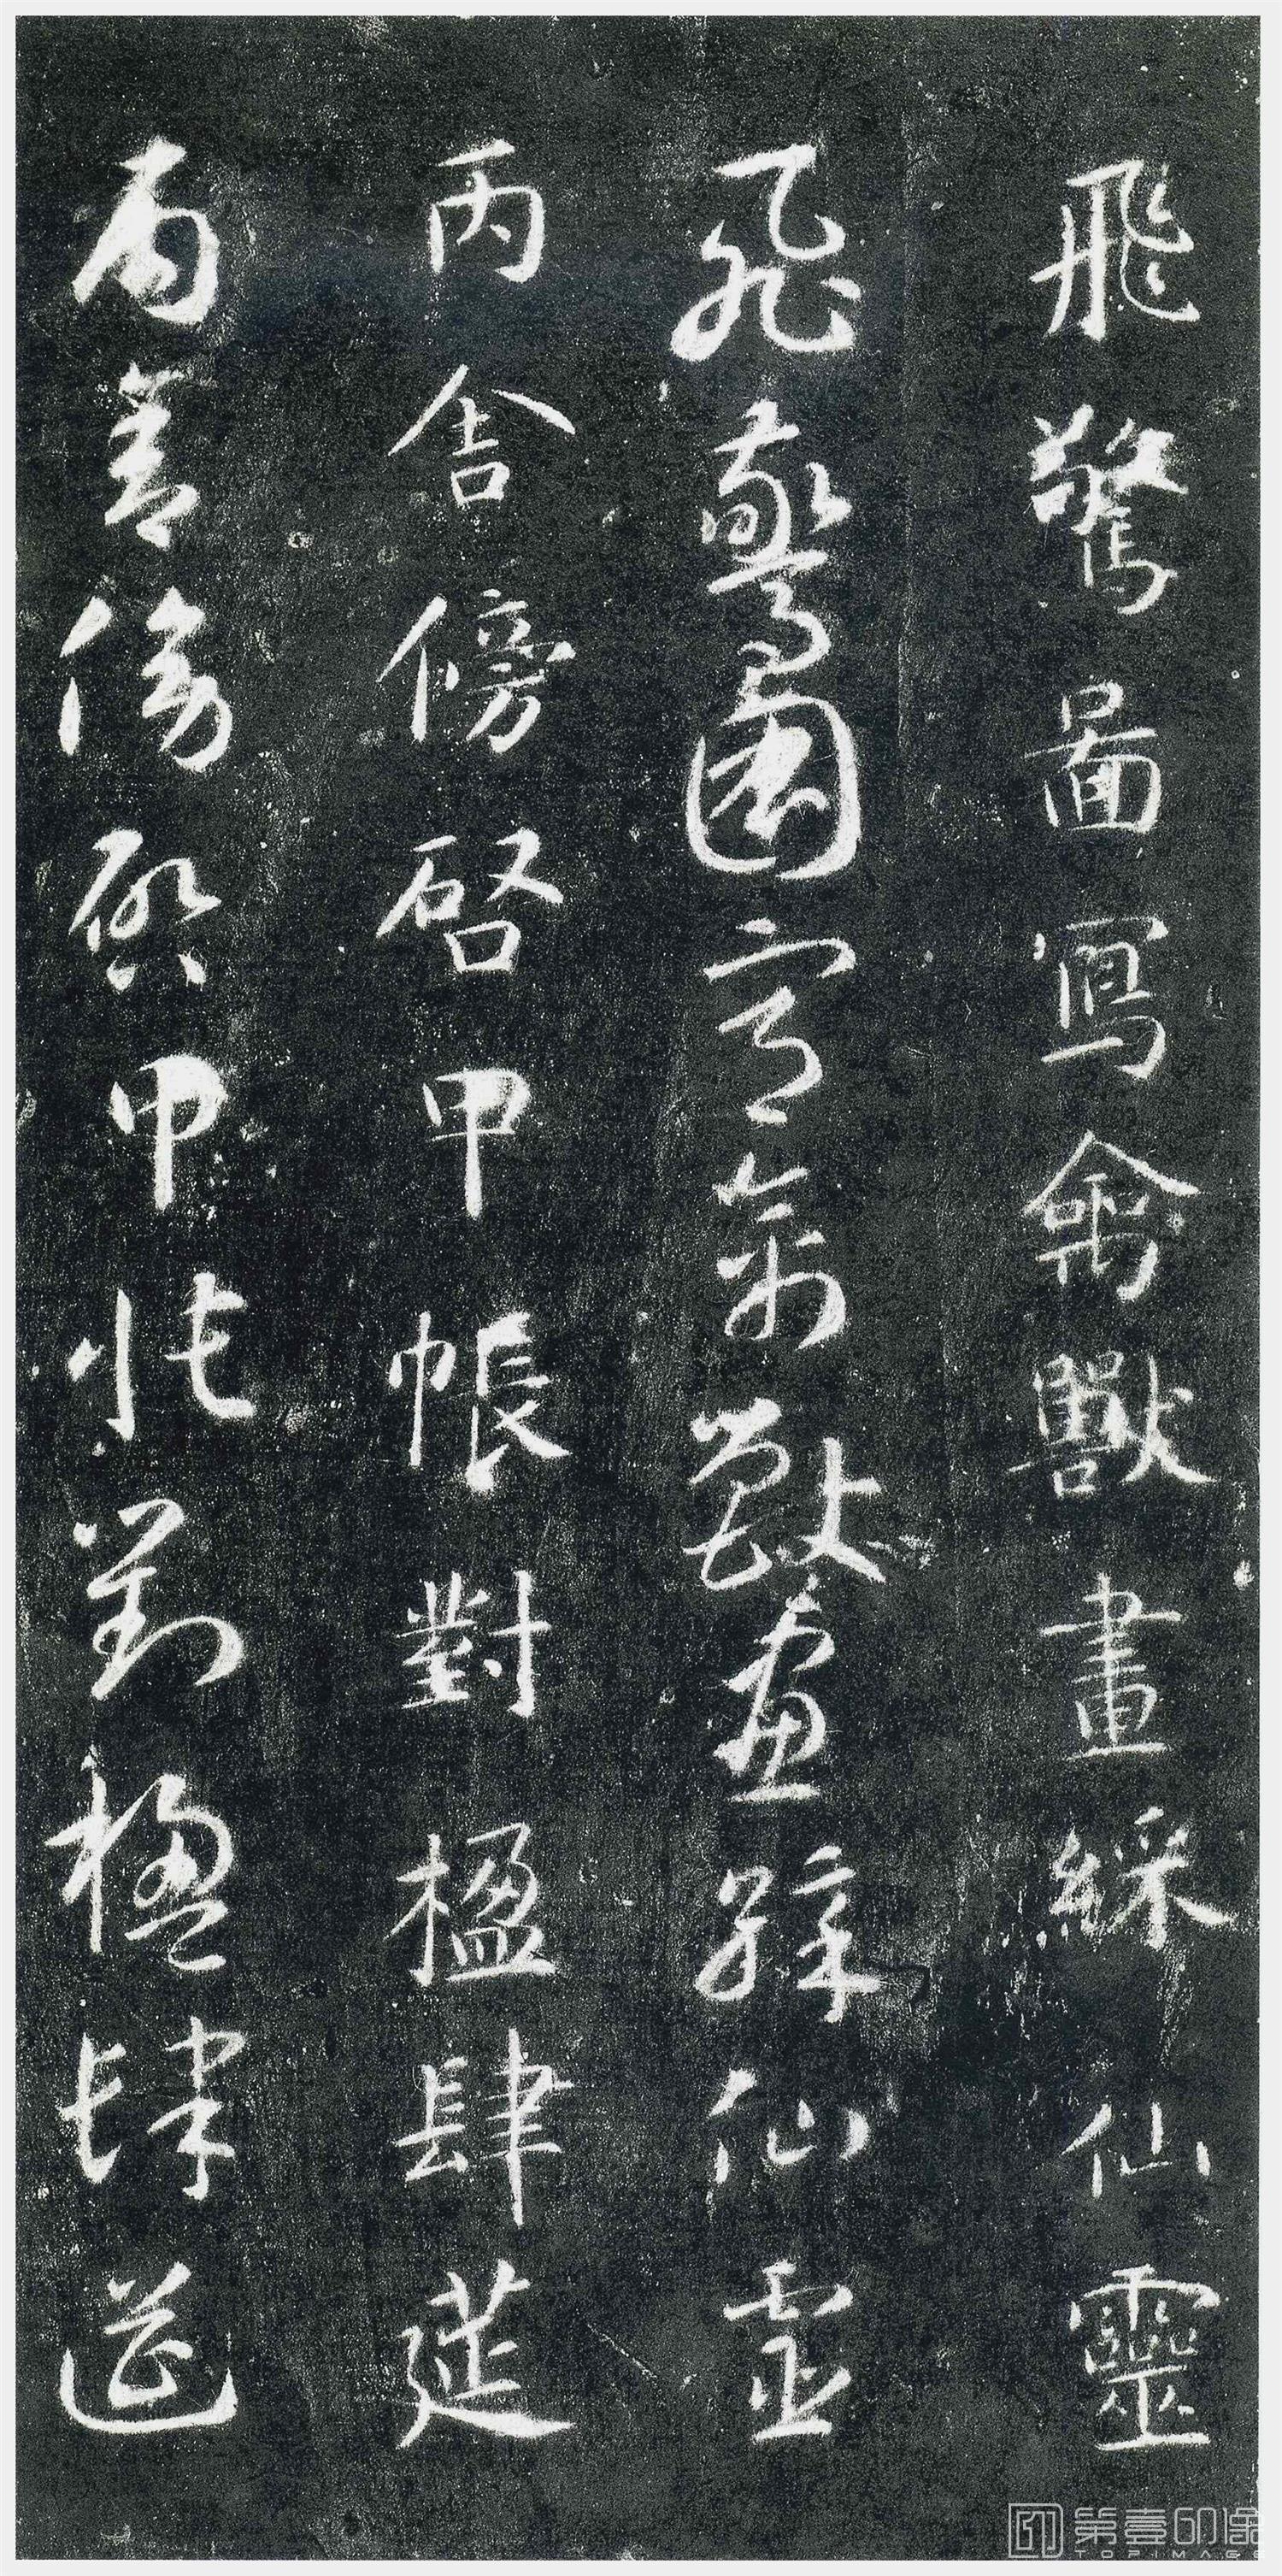 飛驚圖寫禽獸畫綵仙靈
飛驚圖寫禽獸畫綵仙靈
丙舍傍啓甲帳對楹肆莚
丙舍傍啓甲帳對楹肆莚
第壹印像
TOPIMAGE